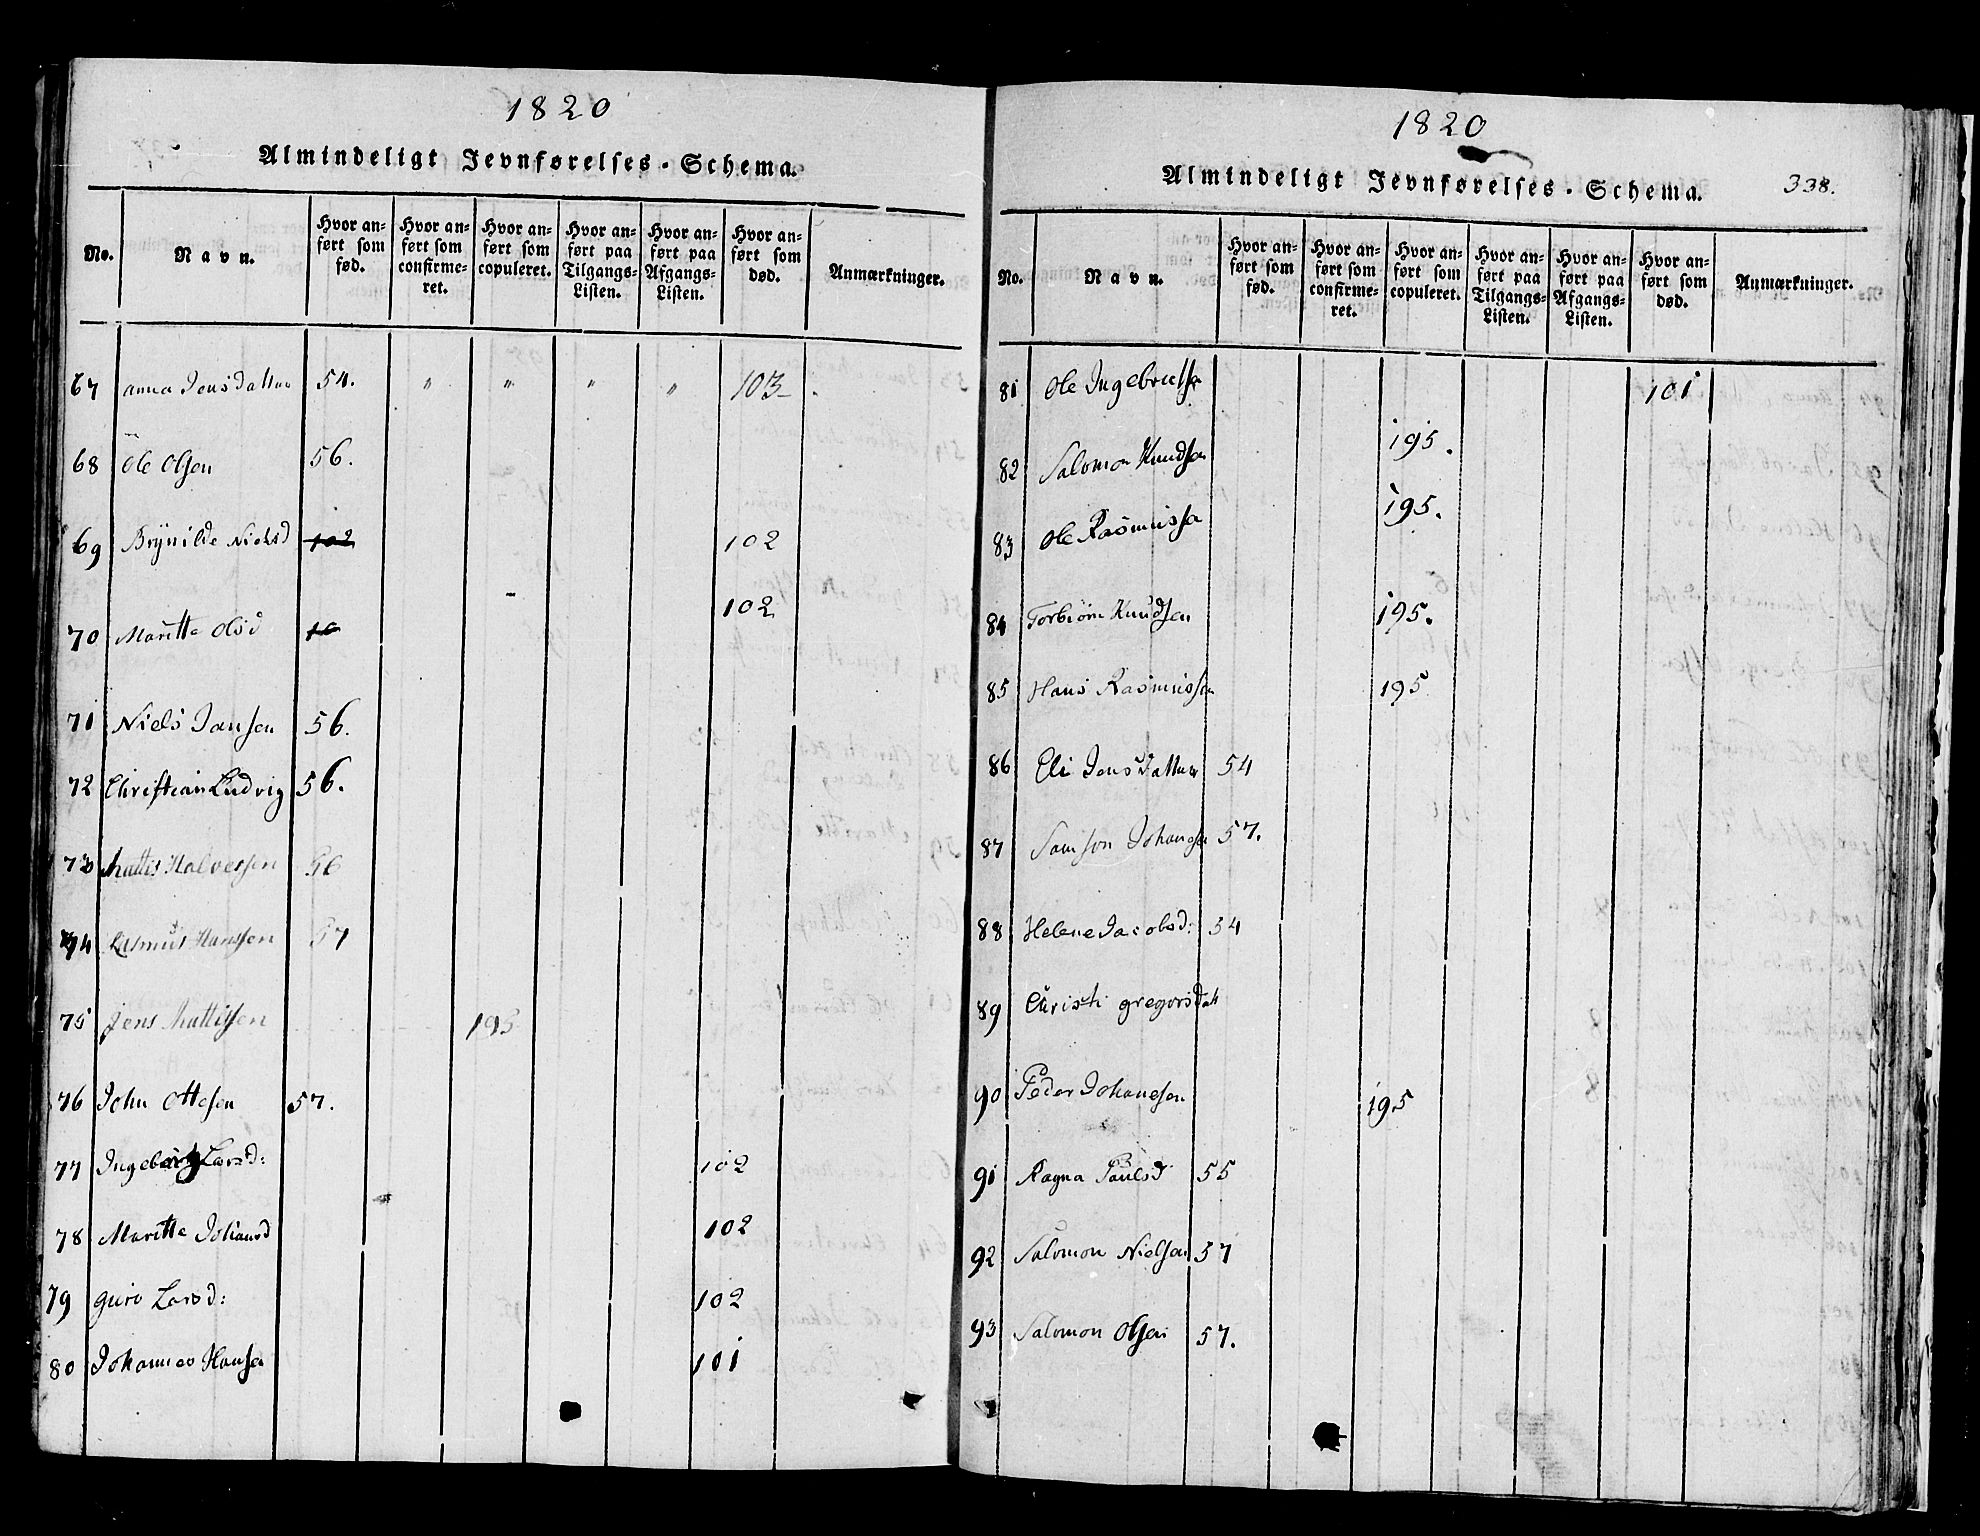 1820
Almindeligt Jevnførelses-Schema.
No. Navn. Hvor anført som fød. Hvor anført som confirmeret. Hvor anført som copuleret. Hvor anført paa Tilgangs-Listen. Hvor anført paa Afgangs-Listen. Hvor anført som død. Anmærkninger.
67 anna Jensdatter 54. " " " " 103
68 Ole Olsen 56.
69 Brynilde Nielsd 102 102
70 Maritte Olsd 10 102
71 Niels Jansen 56.
72 Christian Ludvig 56.
73 Mattis Halversen 56
74 Rasmus Hansen 57
75 Jens Mattissen 195
76 John Ottesen 57.
77 Ingeborg Larsd: 102
78 Maritte Johansd 102
79 guro Larsd: 102
80 Johannes Hansen 101
1820
Almindeligt Jevnførelses-Schema. 338.
No. Navn. Hvor anført som fød. Hvor anført som confirmeret. Hvor anført som copuleret. Hvor anført paa Tilgangs-Listen. Hvor anført paa Afgangs-Listen. Hvor anført som død. Anmærkninger.
81 Ole Ingebretsen 101
82 Salomon Knudsen 195.
83 Ole Rasmussen 195.
84 Torbiörn Knudsen 195.
85 Hans Rasmussen 195
86 Eli Jensdatter 54
87 Samson Johansen 57.
88 Helene Jacobsd: 54
89 Christi gregorsdatt
90 Peder Johanesen 195
91 Ragna Paulsd 55
92 Salomon Nielsen 57
93 Salomon Olsen 57.